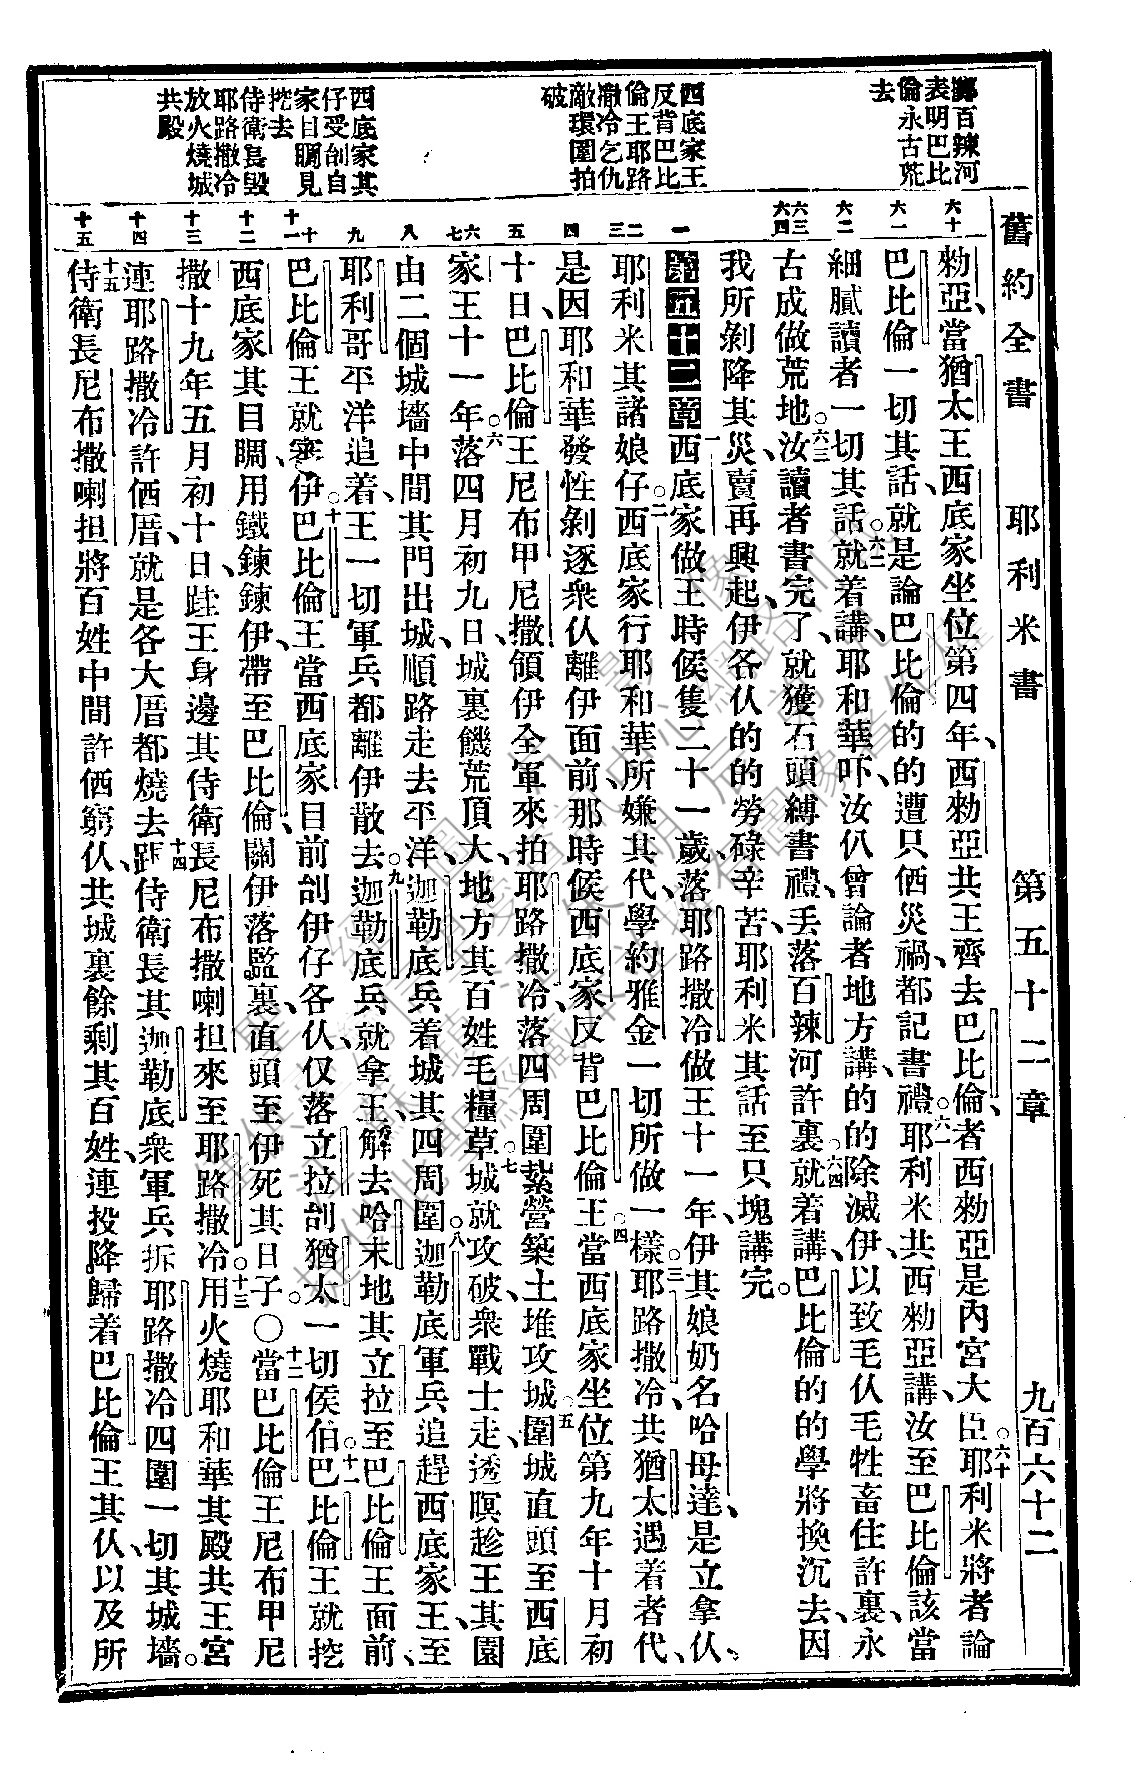 舊約全書 耶利米書 第五十二章 九百六十二
擲百辣河
表明巴比
倫永古荒
去
西底家王
反背巴比
倫王耶路
撒冷乞仇
敵環圍拍
破
西底家其
仔受刣自
家目睭見
挖去
侍衛長毀
耶路撒冷
放火燒城
共殿
六十
六一
六二
六三
六四
一
二
三
四
五
六
七
八
九
十
十一
十二
十三
十四
十五
勑亞、當猶太王西底家坐位第四年、西勑亞共王齊去巴比倫、者西勑亞是內宮大臣。六十耶利米將者論
巴比倫一切其話、就是論巴比倫的的遭只俩災禍、都記書禮。六一耶利米共西勑亞講、汝至巴比倫、該當
細膩讀者一切其話。六二就着講、耶和華吓、汝仈曾論者地方講、的的除滅伊、以致毛仈毛牲畜住許裏、永
古成做荒地。六三汝讀者書完了、就獲石頭縛書禮、丢落百辣河許裏。六四就着講、巴比倫的的學將換沉去、因
我所剝降其災、賣再興起、伊各仈的的勞碌辛苦、耶利米其話至只塊講完。
第五十二章 一西底家做王時候隻二十一歲、落耶路撒冷做王十一年、伊其娘奶名哈母達、是立拿仈、
耶利米其諸娘仔。二西底家行耶和華所嫌其代、學約雅金一切所做一樣。三耶路撒冷共猶太遇着者代、
是因耶和華發性剝逐衆仈離伊面前、那時候西底家反背巴比倫王。四當西底家坐位第九年十月初
十日、巴比倫王尼布甲尼撒領伊全軍來拍耶路撒冷、落四周圍紮營築土堆攻城。五圍城直頭至西底
家王十一年。六落四月初九日、城裏饑荒頂大、地方其百姓毛糧草。七城就攻破、衆戰士走透暝趁王其園
由二個城墻中間其門出城、順路走去平洋、迦勒底兵着城其四周圍。八迦勒底軍兵追趕西底家王、至
耶利哥平洋追着、王一切軍兵都離伊散去。九迦勒底兵就拿王、解去哈末地其立拉、至巴比倫王面前、
巴比倫王就審伊。十巴比倫王當西底家目前刣伊仔各仈、仅落立拉刣猶太一切侯伯。十一巴比倫王就挖
西底家其目睭、用鐵鍊鍊伊、帶至巴比倫、關伊落監裏、直頭至伊死其日子。○十二當巴比倫王尼布甲尼
撒十九年五月初十日、跬王身邊其侍衛長尼布撒喇担來至耶路撒冷。十三用火燒耶和華其殿、共王宮。
連耶路撒冷許俩厝、就是各大厝都燒去。十四跬侍衛長其迦勒底衆軍兵、拆耶路撒冷四圍一切其城墻。
十五侍衛長尼布撒喇担、將百姓中間許俩窮仈、共城裏餘剩其百姓、連投降歸着巴比倫王其仈、以及所